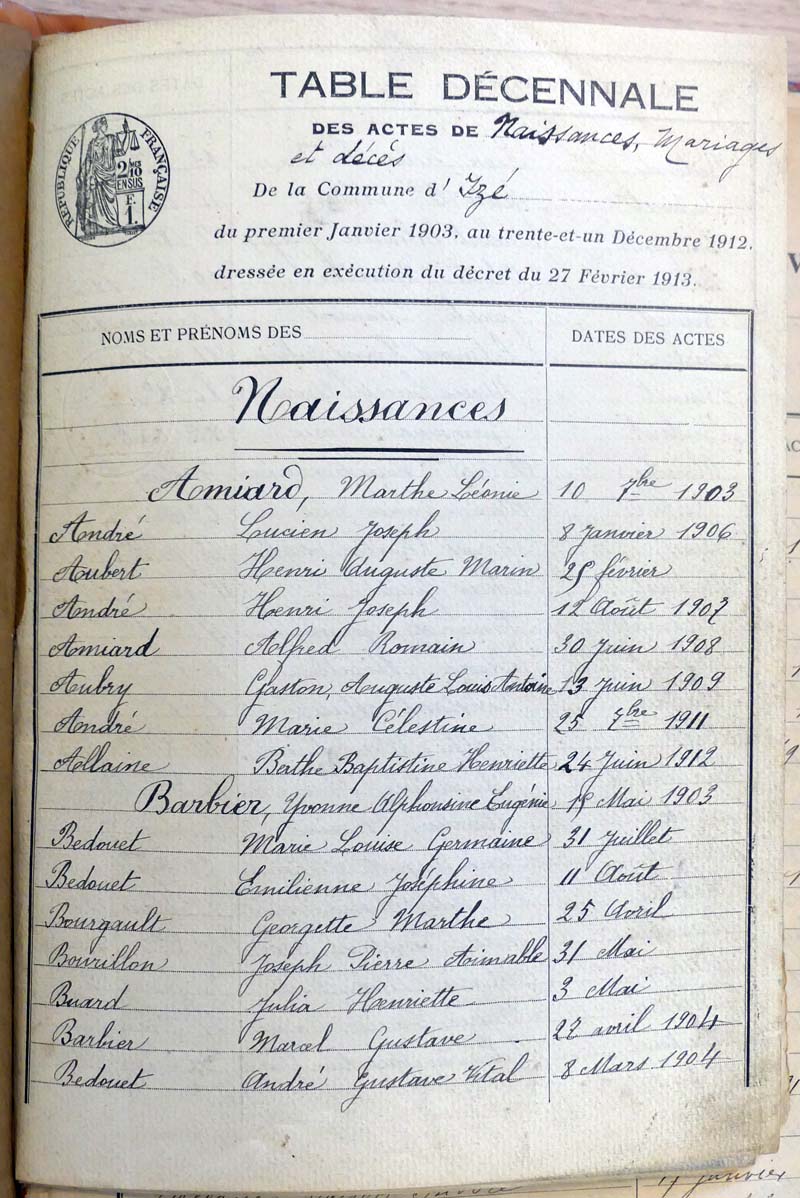 TABLE DÉCENNALE
DES ACTES DE Naissances, Mariages
et décés
RÉPUBLIQUE FRANÇAISE
2/10
EN SUS
F.
1.
De la Commune d' Izé
du premier Janvier 1903, au trente-et-un Décembre 1912,
dressée en exécution du décret du 27 Février 1913.
NOMS ET PRÉNOMS DES DATES DES ACTES
Naissances
Amiard, Marthe Léonie 10 7bre 1903
André Lucien Joseph 8 Janvier 1906
Aubert Henri Auguste Marin 25 février
André Henri Joseph 12 Août 1907
Amiard Alfred Romain 30 Juin 1908
Aubry Gaston, Auguste Louis Antoine 13 Juin 1909
André Marie Célestine 25 7bre 1911
Allaine Berthe Baptistine Henriette 24 Juin 1912
Barbier, Yvonne Alphonsine Eugénie Mai 1903
Bedouet Marie Louise Germaine 31 Juillet
Bedouet Emilienne Joséphine 11 Août
Bourgault Georgette Marthe 25 Avril
Bourillon Joseph Pierre Aimable 31 Mai
Buard Julia Henriette 3 Mai
Barbier Marcel Gustave avril 1904
Bedouet André Gustave Vital 8 Mars 1904
janvier